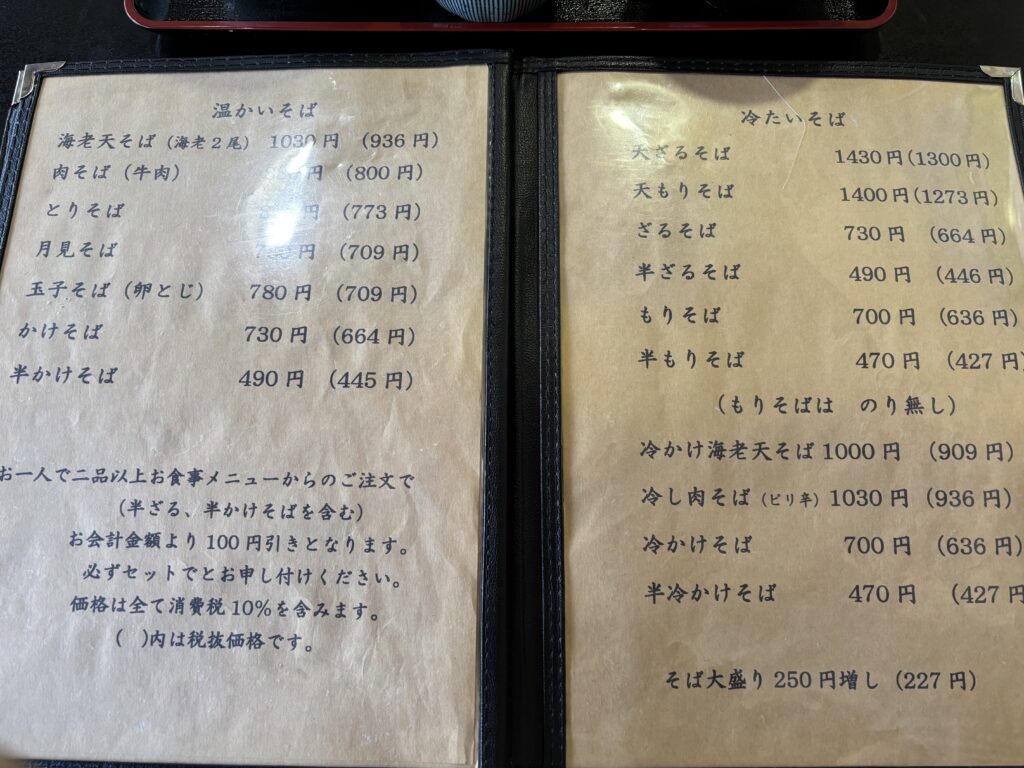 温かいそば
海老天そば（海老2尾） 1030円 （936円）
肉そば（牛肉） 円 （800円）
とりそば 円 （773円）
月見そば 円 （709円）
玉子そば（卵とじ） 780円 （709円）
かけそば 730円 （664円）
半かけそば 490円 （445円）
お一人で二品以上お食事メニューからのご注文で
（半ざる、半かけそばを含む）
お会計金額より100円引きとなります。
必ずセットでとお申し付けください。
価格は全て消費税10%を含みます。
（ ）内は税抜価格です。
冷たいそば
天ざるそば 1430円（1300円）
天もりそば 1400円（1273円）
ざるそば 730円 （664円）
半ざるそば 490円 （446円）
もりそば 700円 （636円）
半もりそば 470円 （427円）
（もりそばは のり無し）
冷かけ海老天そば 1000円 （909円）
冷し肉そば（ピリ辛） 1030円 （936円）
冷かけそば 700円 （636円）
半冷かけそば 470円 （427円
そば大盛り250円増し（227円）